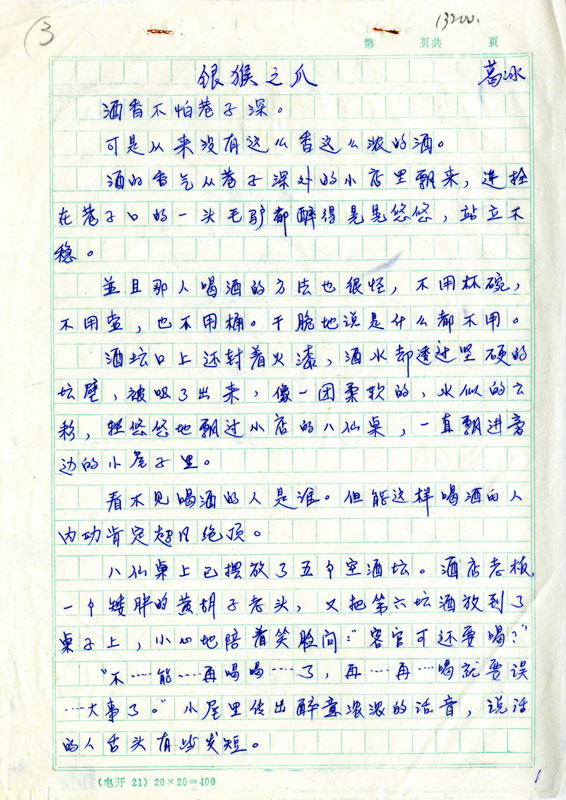 ③
13200.
第 页共 页
银猴之爪
葛冰
酒香不怕巷子深。
可是从来没有这么香这么浓的酒。
酒的香气从巷子深处的小店里飘来，连拴
在巷子口的一头毛驴都醉得晃晃悠悠，站立不
稳。
並且那人喝酒的方法也很怪，不用杯碗，
不用壶，也不用桶。干脆地说是什么都不用。
酒坛口上还封着火漆，酒水却透过坚硬的
坛壁，被吸了出来，像一团柔软的，水似的云
彩，轻悠悠地飘过小店的八仙桌，一直飘进旁
边的小屋子里。
看不见喝酒的人是谁。但能这样喝酒的人
内功肯定超凡绝顶。
八仙桌上已摆放了五个空酒坛。酒店老板，
一个矮胖的黄胡子老头，又把第六坛酒放到了
桌子上，小心地陪着笑脸问：“客官可还要喝？”
“不……能……再喝喝……了，再……再…喝就要误
……大事了。”小屋里传出醉意浓浓的话音，说话
的人舌头有些发短。
(电开 21) 20×20=400
1